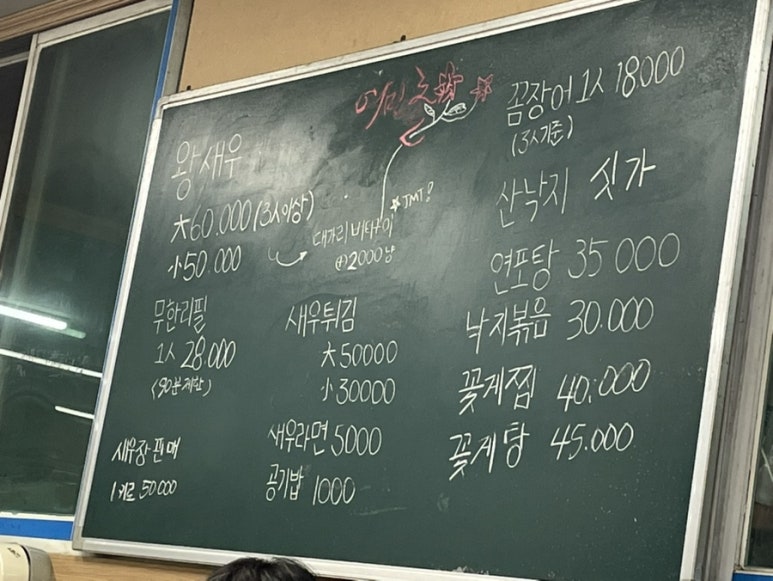 왕새우
大 60.000 (3人이상)
小 50.000
대가리 버터구이
⊕ 2000냥
★ TMT!
무한리필
1人 28.000
(90분제한)
새우장 판매
1키로 50.000
새우튀김
大 50000
小 30000
새우라면 5000
공기밥 1000
꼼장어 1人 18.000
(3人기준)
산낙지 싯가
연포탕 35000
낙지볶음 30.000
꽃게찜 40.000
꽃게탕 45.000